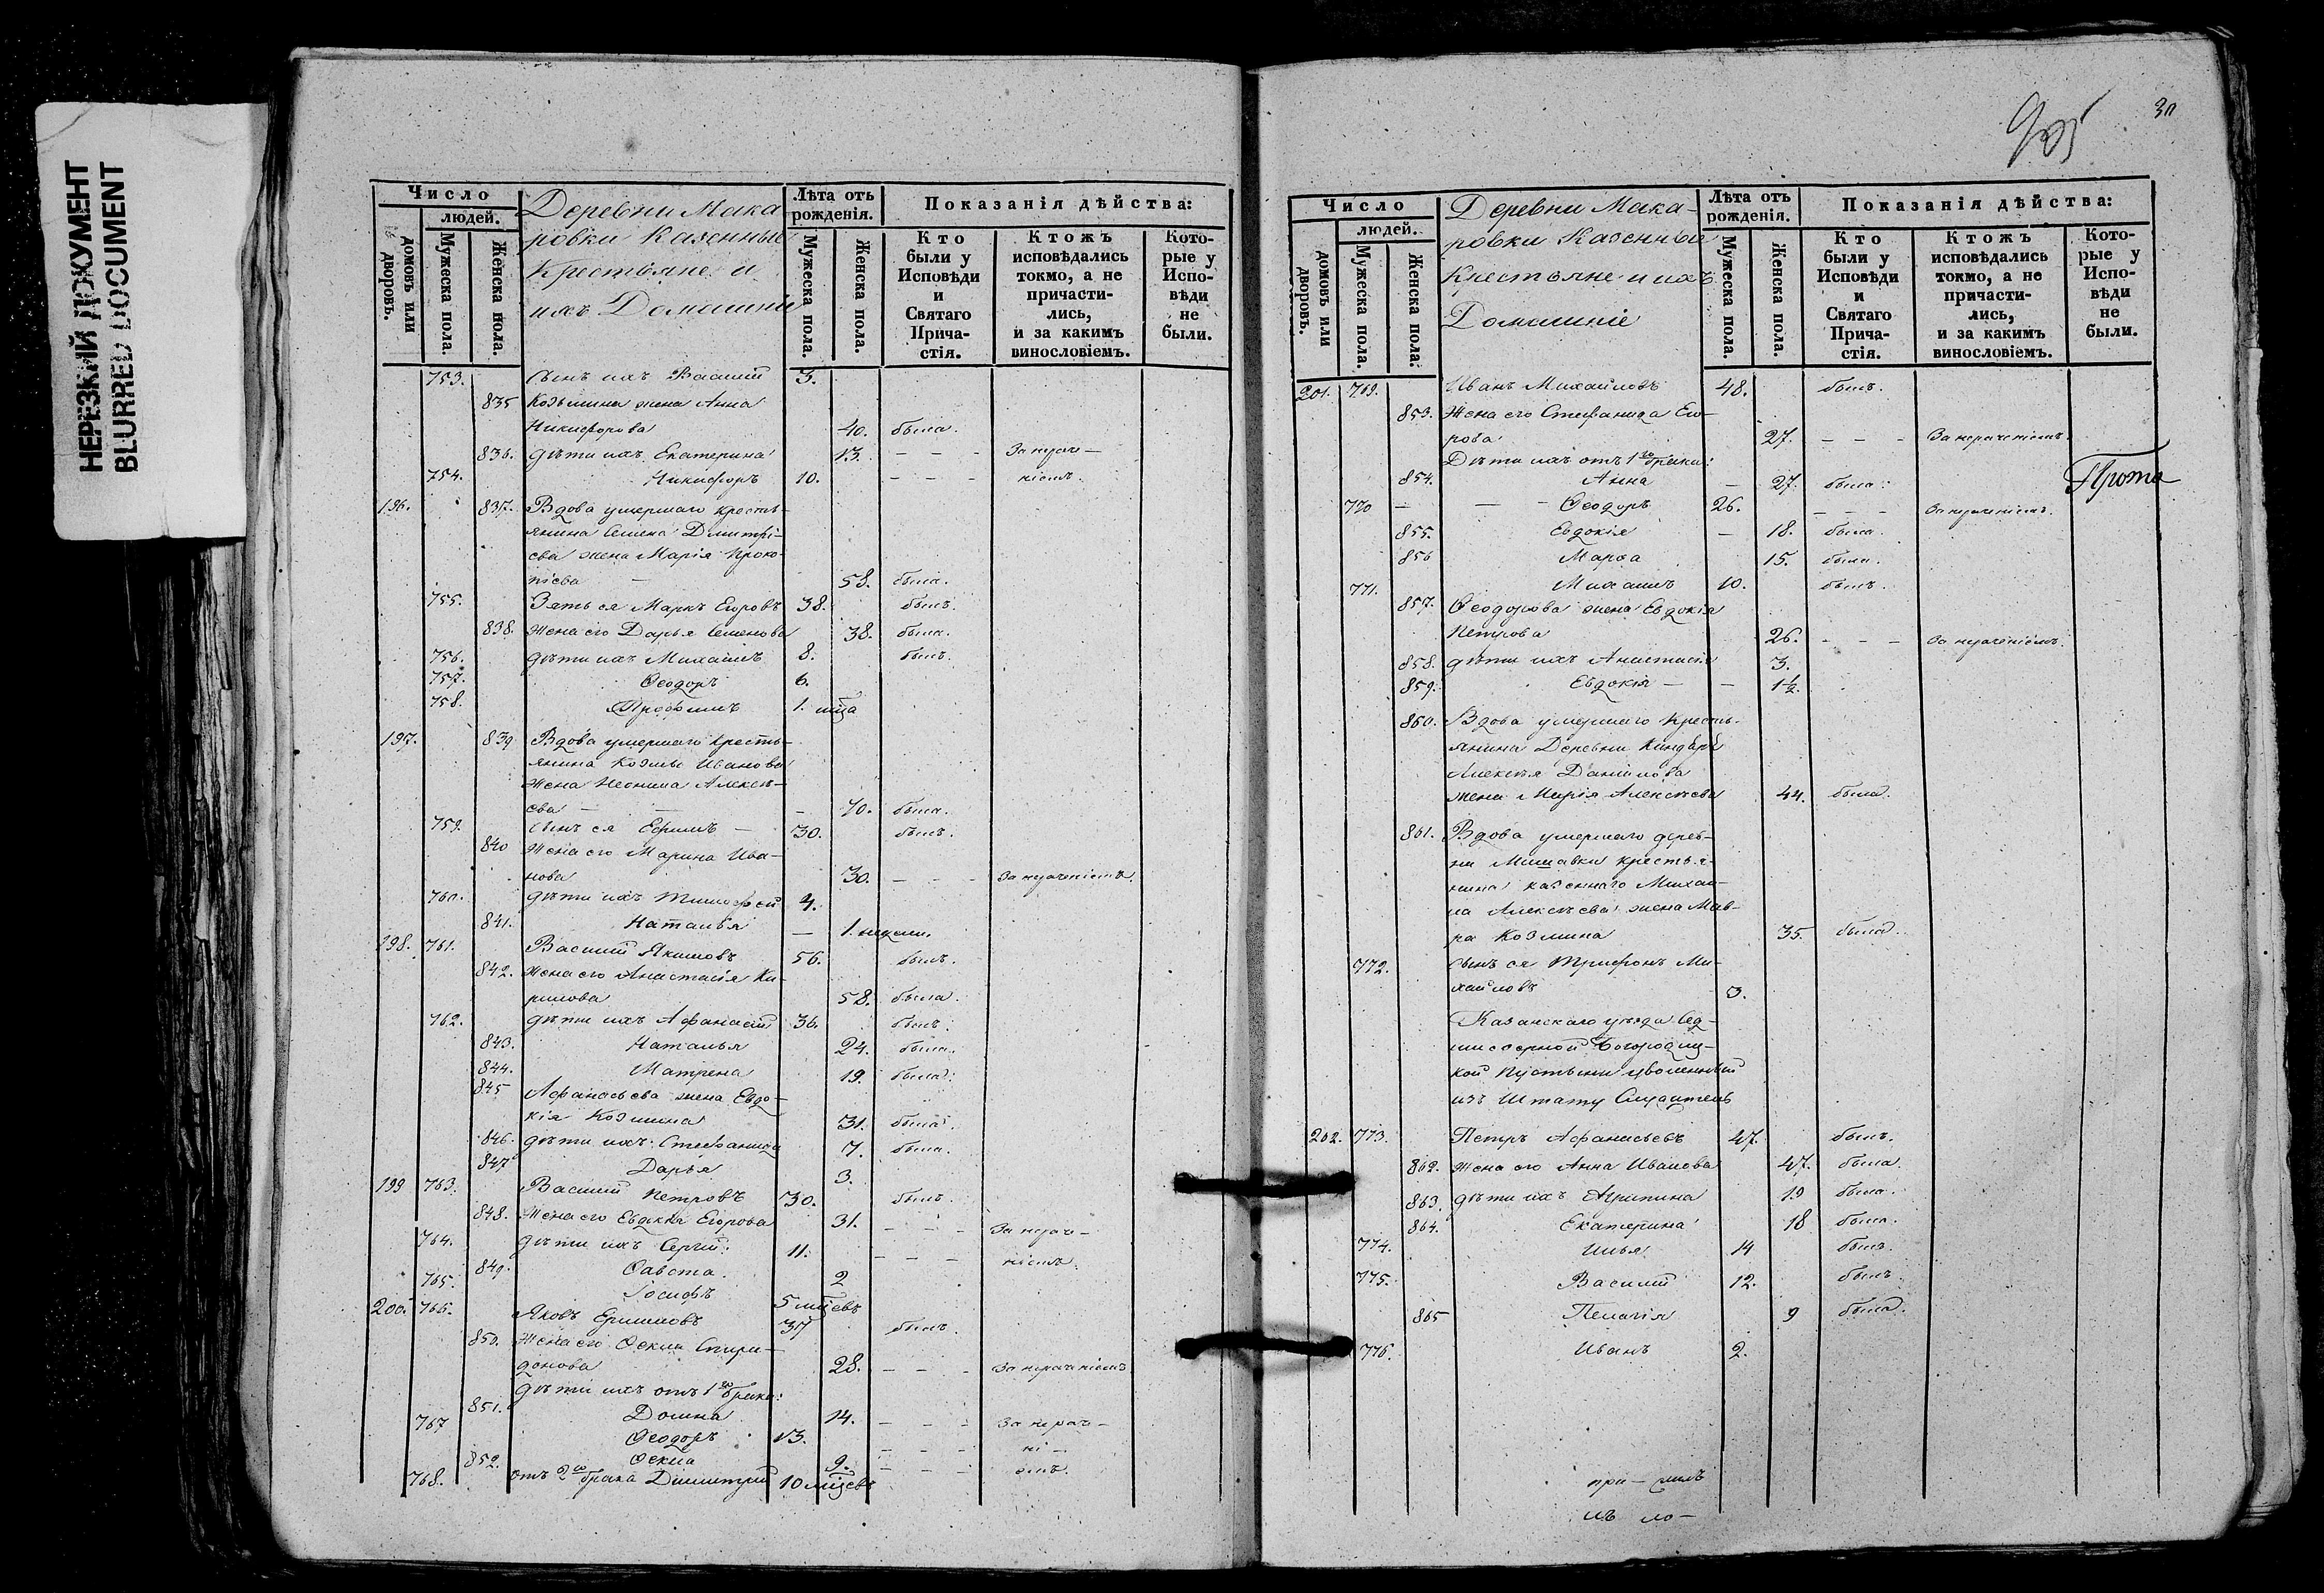 НЕРЕЗКИЙ ДОКУМЕНТ
BLURRED DOCUMENT
Число
людей.
домовъ или дворовъ.
Мужеска пола.
Женска пола.
Деревни Мака
ровки Казенные
Крестьяне и
ихъ Домашніе
Лѣта отъ рожденія.
Мужеска пола.
Женска пола.
Показанія дѣйства:
Кто были у Исповѣди и Святаго Прича-стія.
Ктожъ исповѣдались токмо, а не причасти-лись, и за какимъ винословіемъ.
Кото-рые у Испо-вѣди не были.
753. Сынъ ихъ Василій 3.
835 Козьмина жена Анна
Никифорова 40. была.
836. дѣти ихъ Екатерина 13. - - - За нераче-
754. Никифоръ 10. - - - ніемъ.
196. 837. Вдова умершаго кресть-
янина Семена Дмитрі-
ева жена Марія Проко-
піева 58. была.
755. Зять ея Маркъ Егоровъ 38. былъ.
838. Жена его Дарья Семенова 38. была.
756. дѣти ихъ Михаилъ 8. былъ.
757. Ѳеодоръ 6.
758. Трофимъ 1. мца
197. 839 Вдова умершаго кресть-
янина Козмы Иванова
жена Неонила Алексѣ-
ева - - 70. была.
759. Сынъ ея Ефимъ - 30. былъ.
840 Жена его Марина Ива-
нова 30. - - - За нераченіемъ.
760. дѣти ихъ Тимофей 4.
841. Наталья — 1. недели.
198. 761. Василій Якимовъ 56. былъ.
842. Жена его Анастасія Ки-
рилова 58. была.
762. дѣти ихъ Афанасій 36. былъ.
843. Наталья 24. была.
844. Матрена 19. была.
845 Афанасьева жена Евдо-
кія Козмина 31. была.
846. дѣти ихъ: Стефанида 7. была.
847 Дарья 3.
199 763. Василій Петровъ 30. былъ.
848. Жена его Евдокія Егорова 31. - - - За нераче-
764. дѣти ихъ Сергій. 11. - - - ніемъ.
849. Савета. 2
765. Іосифъ 5 мцевъ
200. 766. Яковъ 37 былъ.
850. Жена его Ѳекла Спири-
донова 28. - - - За нераченіемъ
дѣти ихъ отъ 1го брака:
851. Домна 14. - - - За нераче-
767 Ѳеодоръ 13. - - - ні-
852. Ѳекла 9. - - - емъ.
768. отъ 2го брака Димитрій 10 мцевъ
30
Число
людей.
домовъ или дворовъ.
Мужеска пола.
Женска пола.
Деревни Мака-
ровки Казенныи
Крестьяне и ихъ
Домашніе
Лѣта отъ рожденія.
Мужеска пола.
Женска пола.
Показанія дѣйства:
Кто были у Исповѣди и Святаго Прича-стія.
Ктожъ исповѣдались токмо, а не причасти-лись, и за какимъ винословіемъ.
Кото-рые у Испо-вѣди не были.
201. 769. Иванъ Михаиловъ 48. былъ.
853. Жена его Стефанида Его-
рова 27. - - - За нераченіемъ.
Дѣти ихъ отъ 1го брака:
854. Анна — 27. была.
Прото
770 — — - Ѳеодоръ 26. - - - За нераченіемъ.
855. Евдокія — 18. была.
856 Марѳа 15. была.
771. Михаилъ 10. былъ.
857. Ѳеодорова жена Евдокія
Петрова 26. - - - За нераченіемъ.
858. дѣти ихъ Анастасія 3.
859. Евдокія — — 1½.
860. Вдова умершаго кресть-
янина Деревни
Алексѣя Данилова
жена Марія Алексѣева 44. была.
861. Вдова умершаго дерев-
ни крестья-
нина казеннаго Михаи-
ла Алексѣева жена Мав-
ра Козмина 35. была.
772. Сынъ ея Трифонъ Ми-
хайловъ 3.
Казанскаго уѣзда Сед-
міозерной Богородиц-
кой Пустыни уволенный
изъ Штату Служитель
202. 773. Петръ Афанасьевъ 47. былъ.
862. Жена его Анна Иванова 47. была.
863. дѣти ихъ Агрипина 19 была.
864. Екатерина 18 была.
774. Илья 14 былъ.
775. Василій 12. былъ.
865 Пелагія 9 была.
776. Иванъ 2.